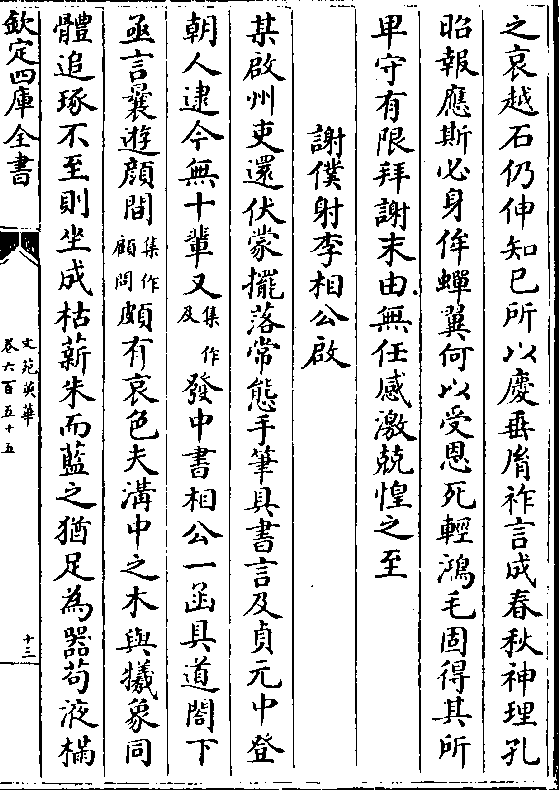 之哀越石仍伸知已所以慶垂胤祚言成春秋神理孔
昭報應斯必身侔蟬翼何以受恩死輕鴻毛固得其所
卑守有限拜謝末由無任感激兢惶之至
謝僕射李相公啟
某啟州吏還伏蒙擺落常態手筆具書言及貞元中登
朝人逮今無十輩又集作及發中書相公一函具道閤下
亟言曩遊顔間集作顧問頗有哀色夫溝中之木與犧象同
體追琢不至則坐成枯薪朱而藍之猶足為器苟液樠
欽定四庫全書
文苑英華
卷六百五十五
十三